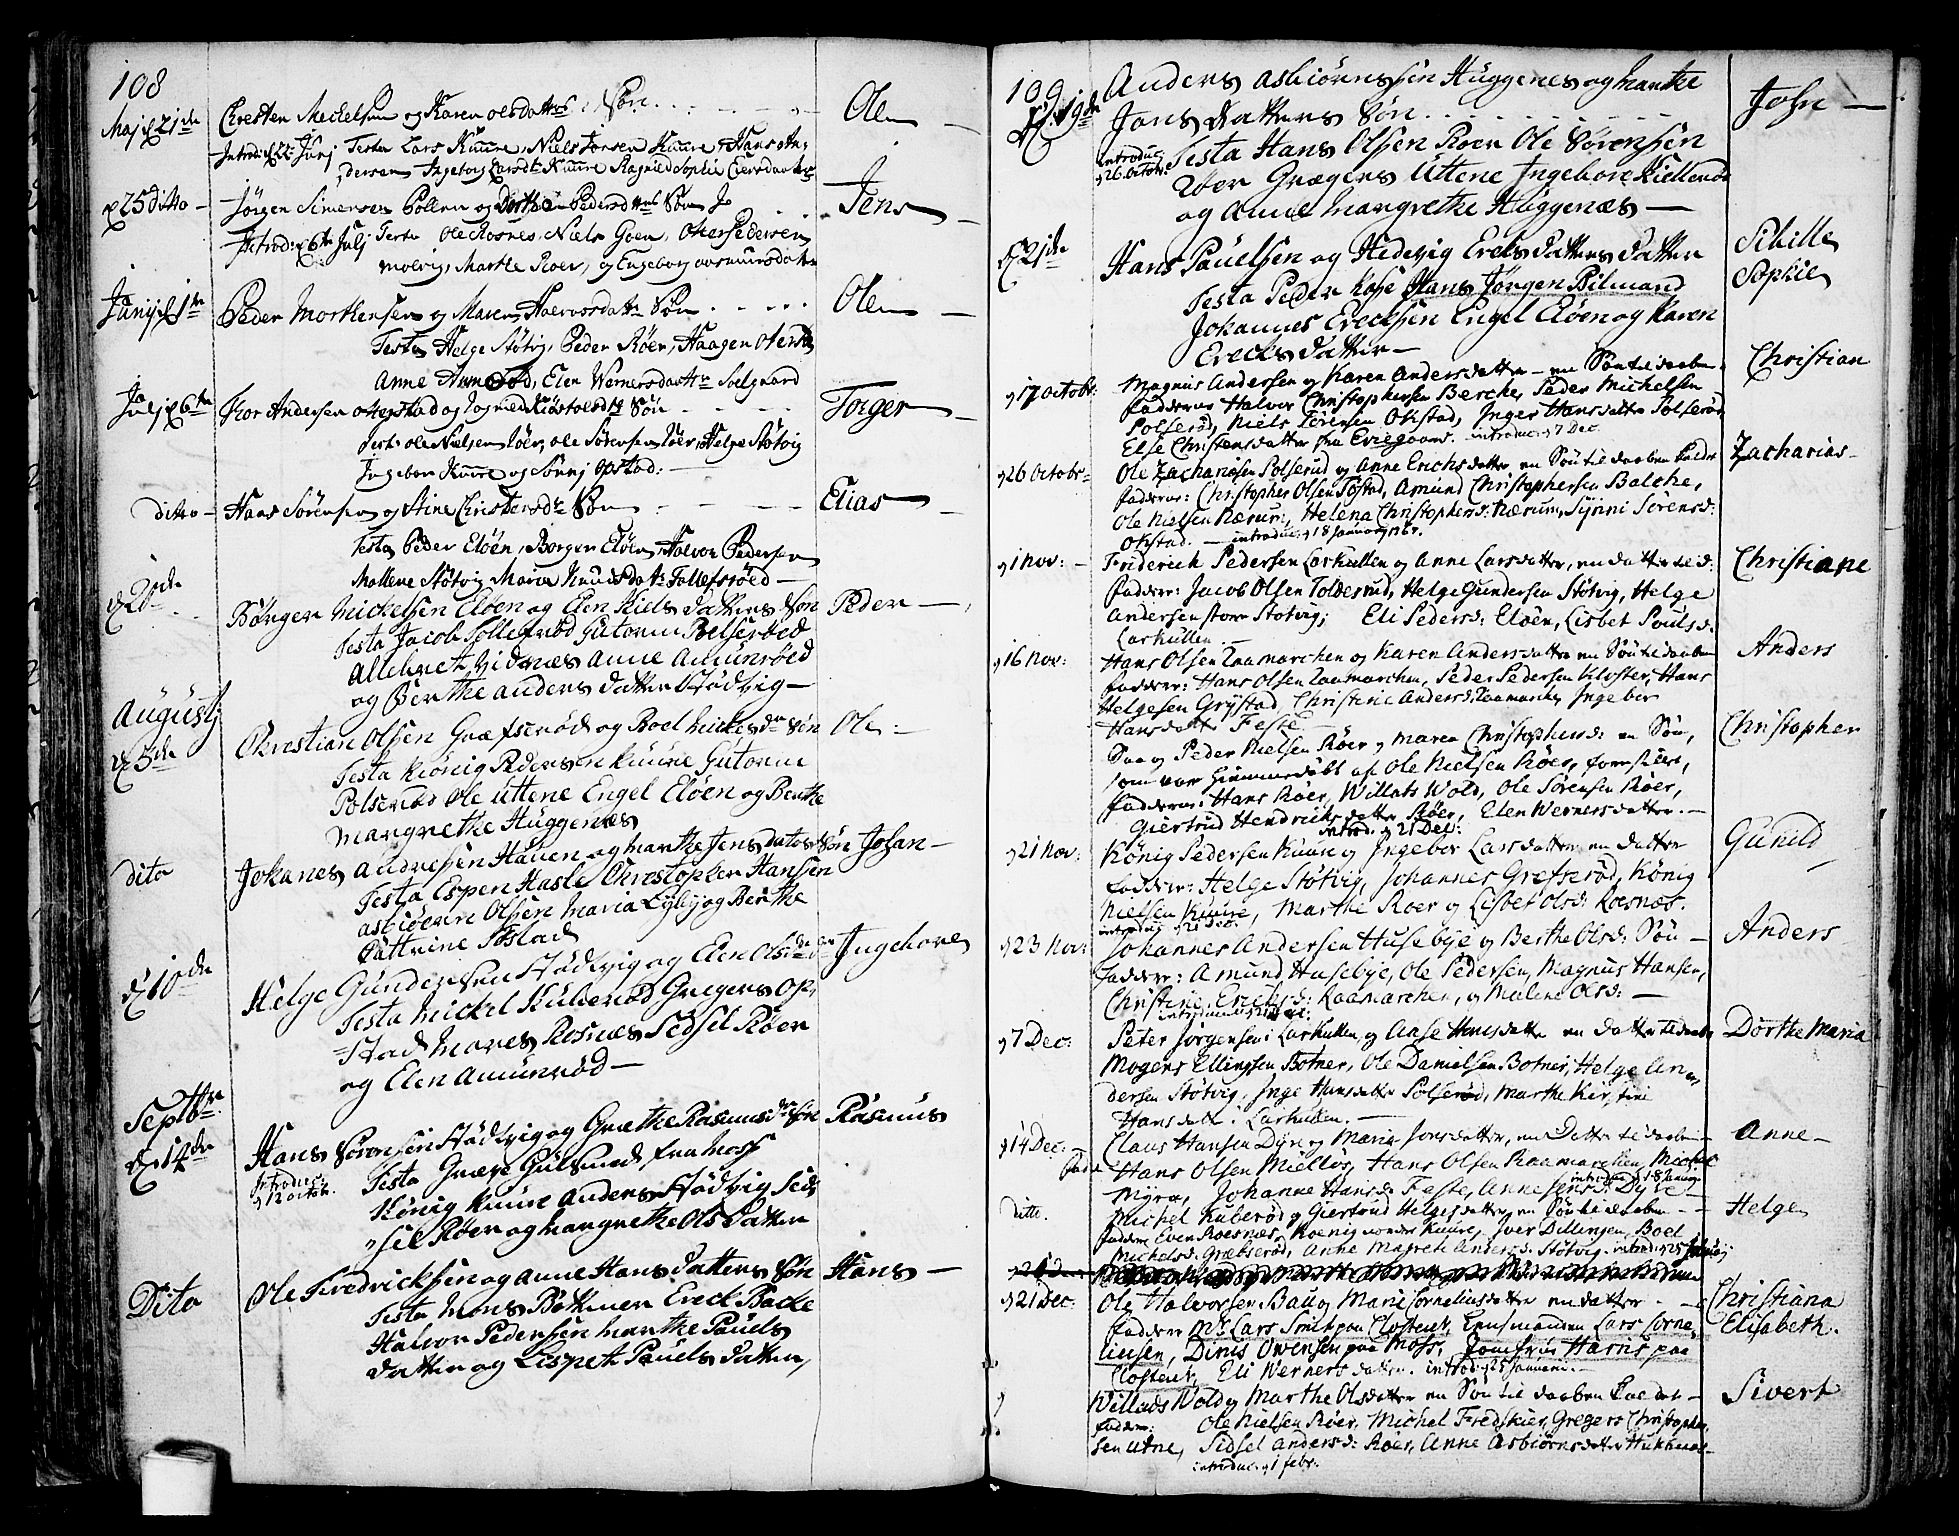 108
Maj d 21de Christen Mechelsen og Karen olsdatters Søn Olen
Introd: Junj Testa Lars Kuure, Niels Jonsen Kuure, Hans An,
dersen Ingeborg Larsdtr Kuure Ragnild Sophie
d 25 ditto Jørgen Simensen Pollen og Pedersdtrs Søn Jens
Introd: d 6te Julj Testa Ole Rosnes, Niels Goen, Oker Pedersen
molvig, Marthe Roer, og Engeborg
Junj d 1te Peder Morthensen og Maren Halvorsdattr Søn Olen
Testa Helge Støtvig, Peder Röer, Haagen
Anne Amunröd, Elen Wernersdattr Soelgaard
Julj d 6te Tor Andersen okepstad og Søn Torger
Test: ole Nielsen Röer, ole Sørensen Röer, Helge Støtvig
Ingebor Kuure og Sünnj opstad:
ditto Hans Sörensen og Stine Christensdtr Søn Elias
Testa Peder Eløen, Borger Eløen, Halvor Pedersen
Mallene Støtvig Maria Knudsdattr Tollefsröed
d 20de Børger Mickelsen Eløen og Elen Niels datters Søn Peder
Testa Jacob Tollefröd Gutorm Polseröed
Vidnæs Anne Amunröed
og Berthe anders datter Stødvig
Augustj
d 3de Christian Olsen Græfseröd og Boel Mickelsdtr Søn Ole
Testa König Pedersen Kuure Gutorm
Polseröd Ole Uttene Engel Eløen og Berthe
Margrethe Huggenæs
dito Johanes Andresen Hauen og Marthe Jens datters Søn Johan
Testa Espen Hasle Christopher Hansen
asbiören Olsen Maria Eybyj og Berthe
Cattrine Tøstad
d 10de Helge Gundersen Stødvig og Elen Olsdtr Ingebore
Testa Mickel Kuberöd Gregers Op,
stad Maren Rosnæs Sidsel Röer
og Elen Amunröd
Septbr
d 14de Hans Sörensen Stødvig og Grethe Rasmusdtr Søn Rasmus
Introduc:
d 12 octob. Testa Græse Gulsmed fra Moss
König Kuure Anders Stødvig Sid,
sel Röer og Margrethe Ols Datter
Dito Ole Fredricksen og Anne Hans Datters Søn Hans
Testa Mons Bøttner Ereck Backe
Halvor Pedersen Marthe Pauels
datter og Lispet Pauels datter,
109 Anders Asbiørnssen Huggenes og Marthe
d 19de Jons Datters Søn John
introduc:
d 26 Octobr: Testa Hans Olsen Roer Ole Sørensen
Roer Grægers Uttene Ingebore Kiellerød
og Anne Margrethe Huggenæs
d 21de Hans Pauelsen og Hedevig Erecks datters Datter Sibille
Sophie
Testa Peder Kose Hans Jörgen Bilmand
Johannes Erecksen Engel Eløen og Karen
Erecks datter
d 17 octobr: Magnus Andersen og Karen Andersdatter en Søn til daaben Christian
Fadderne Halvor Christophersen Berche, Peder Michelsen
Polseröd, Niels Sörensen Okstad, Inger Hansdatter Polseröd
Else Christensdatter fra introduc: d 7 Dec.
d 26 octobr: Ole Zachariesen Polserud og Anne Erichsdatter en Søn til daaben kaldet Zacharias
fadderne: Christopher Olsen Tøstad, Amund Christophersen Balche,
Ole Nielsen Rærum, Helena Christophersd: Rærum, Syrini Sørensd:
Okstad. introduc: d 18 januar 1767.
d 1 nov: Friderich Pedersen Larkullen og Anne Larsdatter, en datter Christiane
Faddere: Jacob Olsen Tolderud, Helge Gundersen Støtvig, Helge
Andersen Støtvig; Eli Pedersd: Eløen, Lisbet Poulsd:
Larkullen.
d 16 nov: Hans Olsen Raamarchen og Karen Andersdatter en Søn til daaben Anders
faddere: Hans Olsen Raamarchen, Peder Pedersen Kloster, Hans
Helgesen Grystad, Christine Andersd: Raamarchen, Ingebor
Hansdatter Feste
Saa og Peder Nielsen Röer og Maren Christophersd: en Søn, Christopher
som var hiemmedøbt af Ole Nielsen Röer,
fadderne: Hans Röer, Willats Wold, Ole Sörensen Röer,
Giertrud Hendrichsdatter Röer, Elen Wernersdatter.
introd. d 21 Dec:
d 21 Nov: König Pedersen Kuure og Ingebor Larsdatter en datter Gunild
faddere: Helge Støtvig, Johannes Grefseröd, König
Nielsen Kuure, Marthe Roer og Lisbet Olsd: Roesnæs.
introduc d 21 Dec.
d 23 Nov: Johannes Andersen Husebye og Berthe Olsd: Søn Anders
faddere: Amund Husebye, Ole Pedersen, Magnus Hansen,
Christine Erichsd: Raamarchen, og Malene Olsd:
d 7 Dec: Peter Jörgensen Larkullen og Aase Hansdatter en datter til daaben Dorthe Maria
Mogens Ellingsen Botner, Ole Danielsen Botner, Helge An,
dersen Støtvig, Inge Hansdatter Polseröd, Marthe Kirstine
Hansdatt: Larkullen.
d 14 Dec: Claus Hansen Dyre og Maria Jonsdatter, en Datter til daaben Anne
Fadd Hans Olsen Mielløs, Hans Olsen Raamarchen, Michel
Myra, Johanne Hansd: Feste, Anne Jensd: Dyre introduc d 18 januarj
ditto. Michel Kuberød og Giertrud Helgesdatter en Søn til daaben Helge
faddere Even Roesnæs, Koenig Kuure, Iver Dillingen, Boel
Michelsd: Græbseröd, Anne Magrete Andersd: Støtvig. introd: d 25 Januarj
d 21 Dec: Ole Halvorsen Bau og Marie Corneliusdatter en datter Christiana
Elisabeth.
faddere Mr: Lars Smit paa Closteret, Ennsmanden Lars Corne,
liusen, Dines Owensen paa Moss, Jomfrue Harris paa
Closteret, Eli Werners datter. introd: d 25 januarii.
Willads Wold og Marthe Olsdatter en Søn til daaben kaldet Sivert
faddere: Ole Nielsen Röer, Michel Fredskier, Gregers Christopher,
sen Utne, Sidsel Andersd: Röer, Anne Asbiörnsdatter Hukkenes
introduc: d 1 febr.